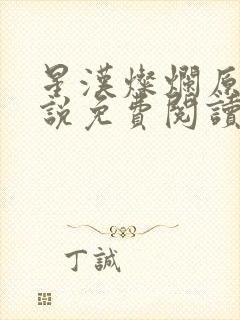 星漢燦爛原
說免費閱讀
丁誠